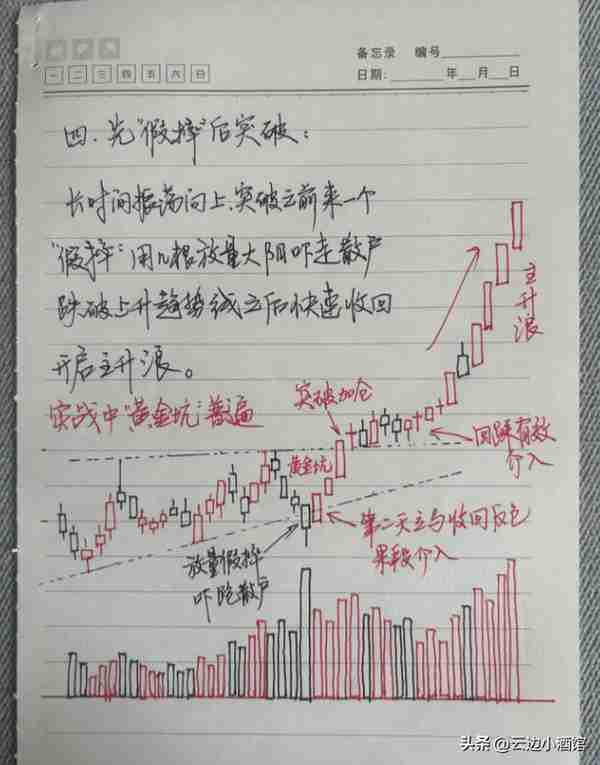 备忘录 编号
一 二 三 四 五 六 日
日期: 年 月 日
四.先"假摔"后突破:
长时间振荡向上,突破之前来一个
"假摔"用几根放量大阴吓走散户
跌破上升趋势线之后快速收回
开启主升浪。
实战中"黄金坑"普遍
突破加仓
主升浪
黄金坑
回踩有效
介入
第二天立马收回反包
果断介入
放量假摔
吓跑散户
头条 @云边小酒馆